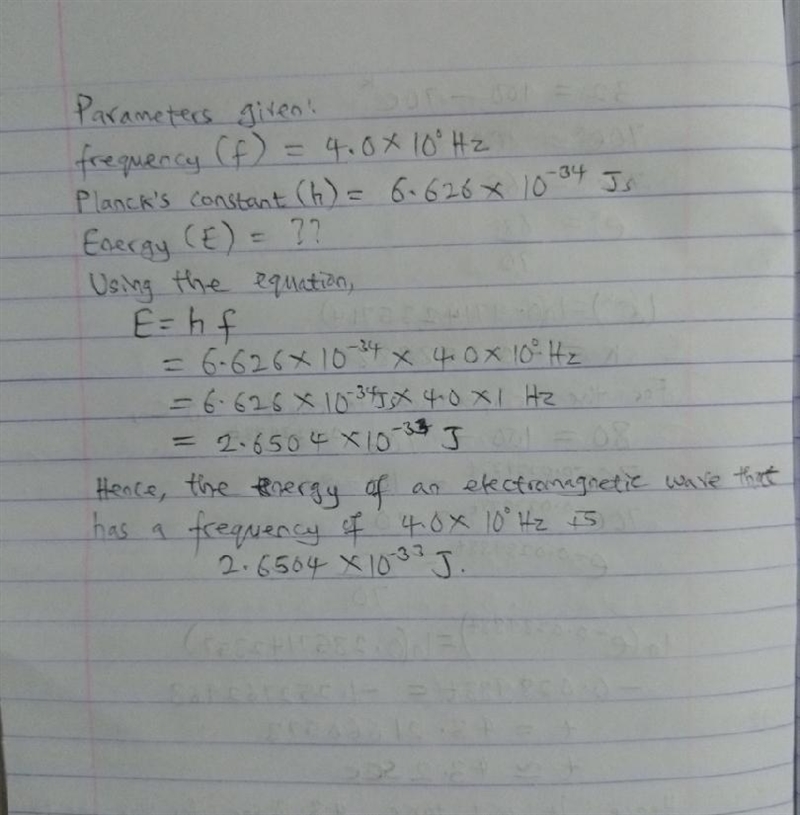 Parameters given:
frequency (f) = 4.0 × 10° Hz
Planck's constant (h) = 6.626 × 10⁻³⁴ Js
Energy (E) = ??
Using the equation,
E = h f
= 6.626 × 10⁻³⁴ × 4.0 × 10° Hz
= 6.626 × 10⁻³⁴ Js × 4.0 × 1 Hz
= 2.6504 × 10⁻³³ J
Hence, the Energy of an electromagnetic wave that
has a frequency of 4.0 × 10° Hz is
2.6504 × 10⁻³³ J.